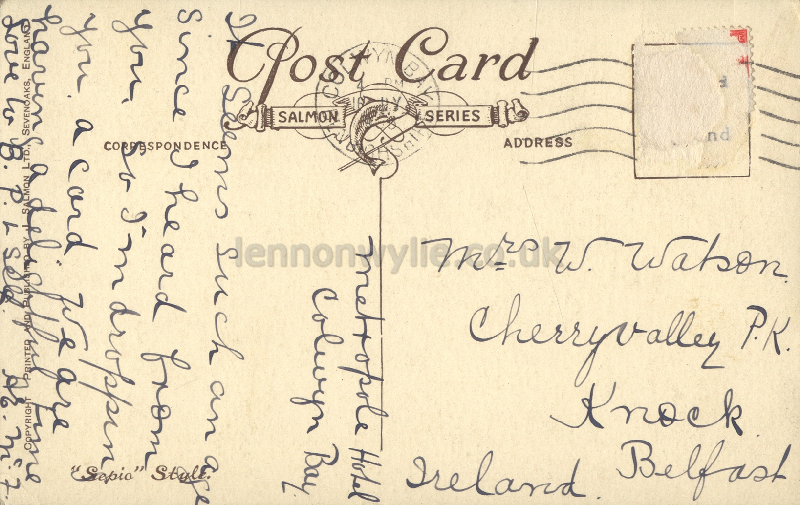 Post Card
SALMON SERIES
CORRESPONDENCE
ADDRESS
COLWYN BAY
nd
Metropole Hotel
Colwyn Bay.
It seems such an age
since I heard from
you. So I'm droppin
you a card. We are
having a delightful time
love to B. P. & self.
Mrs W. Watson.
Cherryvalley P.K.
Knock
Belfast
Ireland.
"Sepio" Style.
COPYRIGHT PRINTED AND PUBLISHED BY J. SALMON LTD., SEVENOAKS, ENGLAND
lennonwylie.co.uk